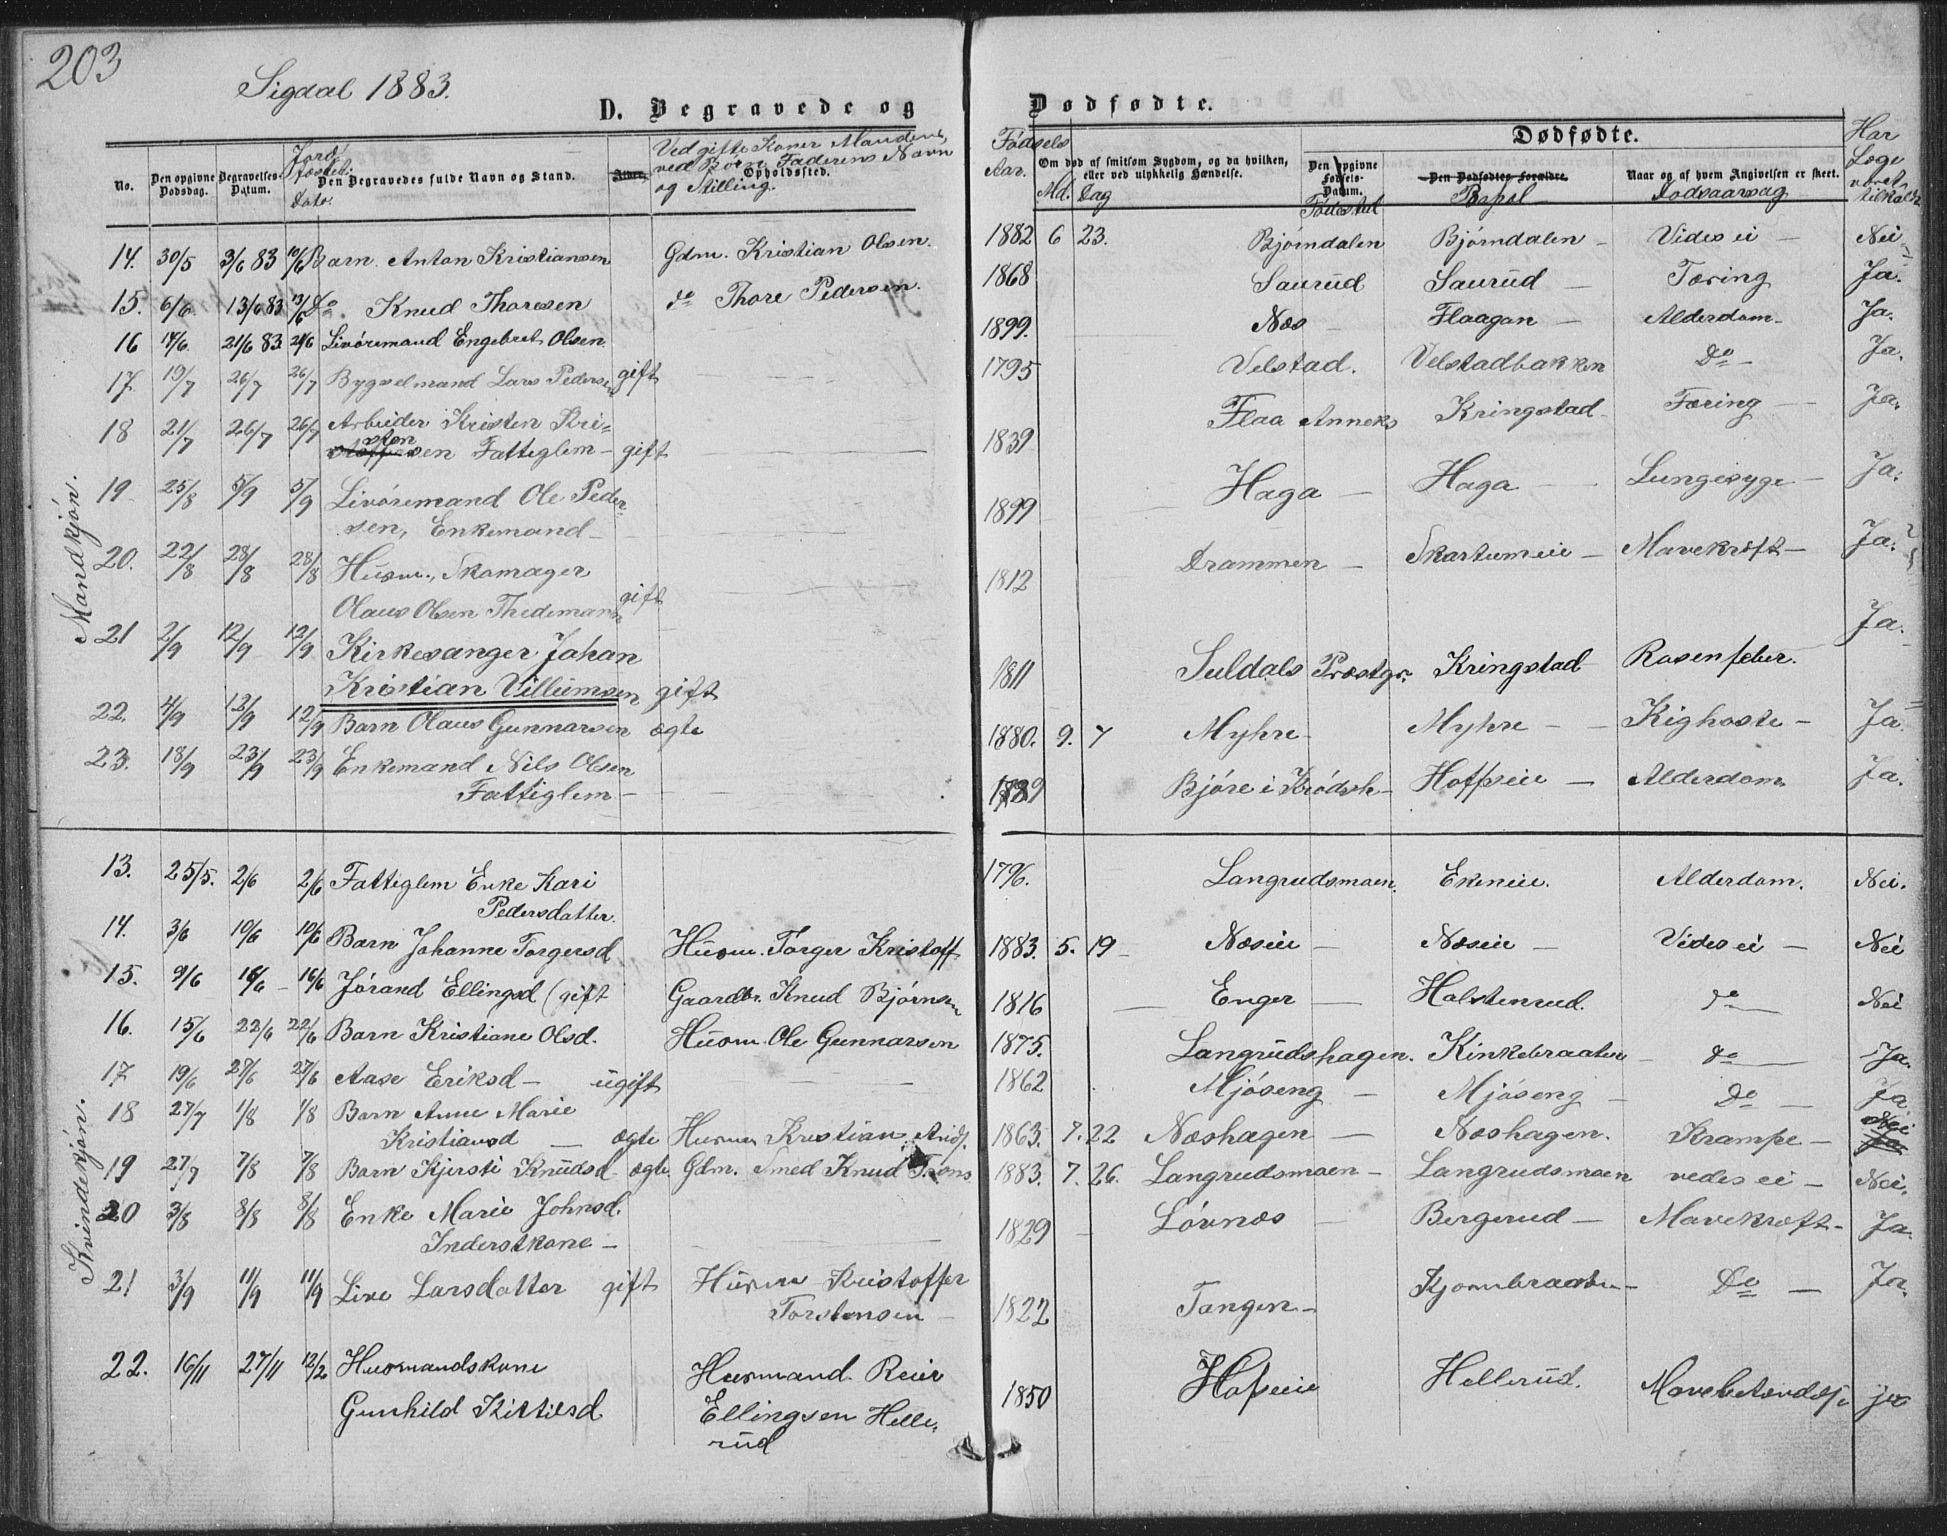 203
Sigdal 1883.
D. Begravede og Dødfødte.
Dødfødte.
No. Den opgivne Dødsdag. Begravelses-Datum. Jordfæstel. Dato. Den Begravedes fulde Navn og Stand. Alder. Ved gifte Koner Mandens, ved Børn Faderens Navn og Stilling. Opholdssted.
Fødsels Aar. Md. Dag Om død af smitsom Sygdom, og da hvilken, eller ved ulykkelig Hændelse. Den opgivne Fødsels-Datum. Fødested Den Dødfødtes Forældre. Bopæl Naar og af hvem Angivelsen er skeet. Dødsaarsag Har Læge været tilkaldt
Mandkjøn.
14. 30/5 3/6 83 10/6 Barn Anton Kristiansen Gdm. Kristian Olsen. 1882 6 23. Bjørndalen Bjørndalen - Vides ei - Nei
15. 6/6. 13/6 83 13/6 Do. Knud Thoresen do Thore Pedersen. 1868 Saurud Saurud - Tæring Ja.
16 14/6. 21/6 83 21/6 Livøremand Engebret Olsen. 1899. Næs - Flaagan - Alderdom - Ja.
17. 19/7 26/7 26/7 Bygselmand Lars Pedersen gift 1795 Velstad. Velstadbakken Do - Ja.
18 21/7 26/7 26/7 Arbeider Kristen Kri=
stensen Fattiglem - gift 1839 Flaa Anneks Kringstad - Tæring - Ja.
19 25/8 5/9 5/9 Livøremand Ole Peder-
sen, Enkemand - 1899 Haga - Haga - Lungesyge - Ja.
20. 22/8 28/8 28/8 Husm., Skomager
Olaus Olsen Thedemans gift 1812 Drammen - Skartumeie - Mavekræft - Ja.
21 2/9 12/9 12/9 Kirkesanger Johan
Kristian Villumsen gift 1811 Suldals Præstgr. Kringstad Rosenfeber. Ja.
22. 4/9 12/9 12/9 Barn Olaus Gunnarsen ægte 1880. 9. 7 Myhre - Myhre - Kighoste - Ja.
23. 18/9 23/9 23/9 Enkemand Nils Olsen
Fattiglem - Bjøre i Krødsh - Hoffseie - Alderdom Ja.
Kvindekjøn.
13. 25/5. 2/6 2/6 Fattiglem Enke Kari
Pedersdatter. 1796. Langrudsmoen. Ekeneie. Alderdom. Nei.
14. 3/6 10/6 10/6 Barn Johanne Torgersd Husm. Torger Kristoff 1883. 5. 19 - Næseie - Næseie - Vides ei - Nei
15. 9/6 16/6 - 16/6 Jørand Ellingsd (gift Gaardbr. Knud Bjørnsen 1816 - Enger - Holstenrud. do - Nei
16. 15/6 22/6 22/6 Barn Kristiane Olsd. Husm. Ole Gunnarsen 1875. Langrudshagen. Kinkebraaten - do - Ja.
17 19/6 27/6 27/6 Aase Eriksd - ugift 1862 Mjøseng - Mjøseng - Do - Ja
18 27/7 1/8 1/8 Barn Anne Marie
Kristiansd - ægte Husman Kristian Andf. 1863. 7. 22 Næshagen - Næshagen. Krampe - Nei
19 27/7 7/8 7/8 Barn Kjersti Knudsd - ægte Gdm. Smed Knud Trons. 1883. 7. 26. Langrudsmoen - Langrudsmoen vedes ei - Nei.
20 3/8 8/8 8/8 Enke Marie Johnsd.
Inderstkone - 1829 - Løvnæs - Bergerud - Mavekræft - Ja.
21 3/9 11/9 11/9 Live Larsdatter gift Husm Kristoffer
Torstensen - 1822 Tangen - Kjørnbraaten - Do - Ja.
22. 16/11 27/11 12/2 Husmandskone Husmand Reier
Gunhild Kittilsd Ellingsen Helle-
rud 1850 Hofseie Hellerud. Mavebetændelse ja